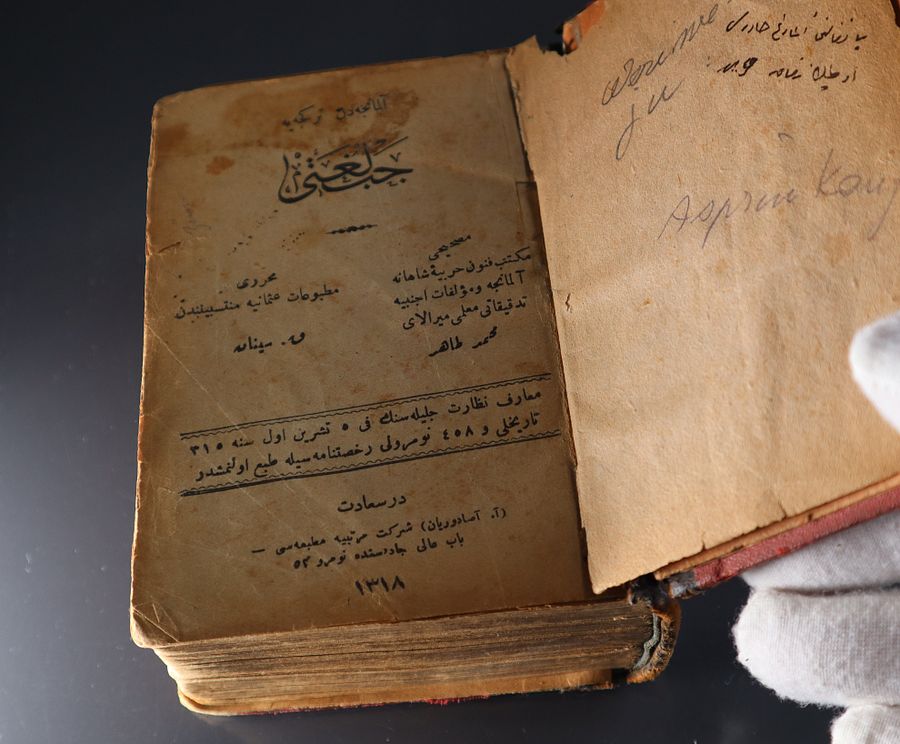 آلمانجه‌دن ترکجه‌یه
جب لغتی
مصححی
مکتب فنون حربیهٔ شاهانه
آلمانجه و مؤلفات اجنبیه
تدقیقاتی معلمی میرالای
محمد طاهر
محرری
مطبوعات عثمانیه منتسبیندن
و. سینان
معارف نظارت جلیله‌سنك فی ٥ تشرین اول سنه ٣١٥
تاریخلی و ٤٥٨ نومرولی رخصتنامه‌سیله طبع اولنمشدر
درسعادت
(آ. آصادوریان) شرکت مرتبیه مطبعه‌سی —
باب عالی جاده‌سنده نومرو ٥٢
١٣١٨
Asprin